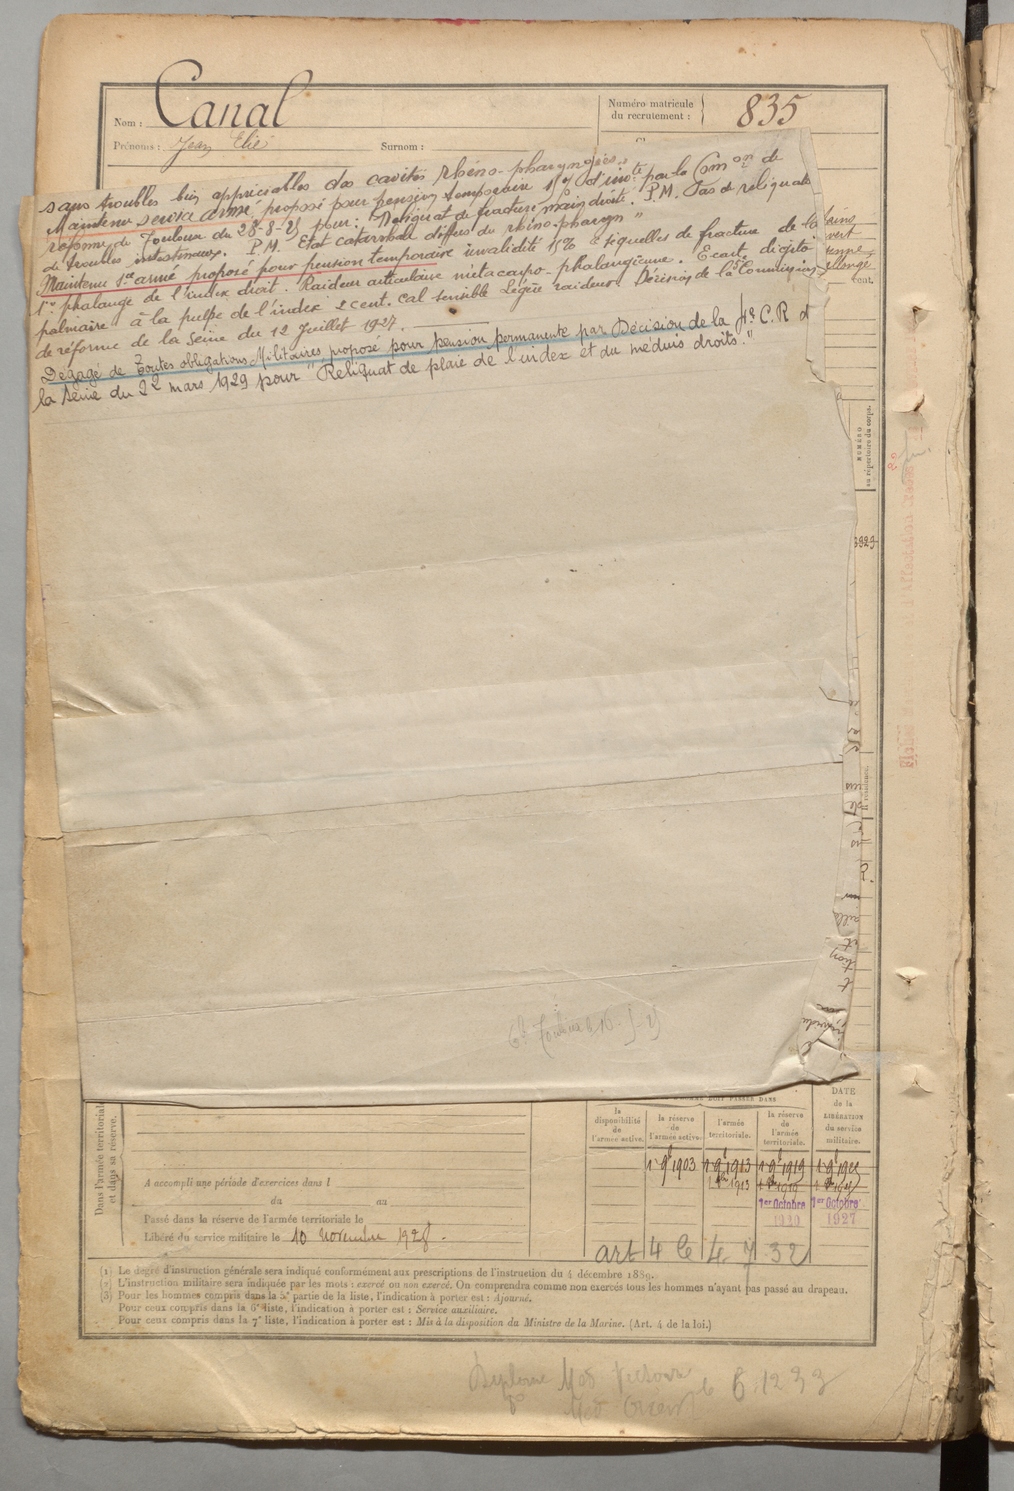 Nom : Canal
Numéro matricule
du recrutement : 835
Prénoms : Jean Elie Surnom :
sans troubles bien appréciables des cavités rhino-pharyngées.
Maintenu service armé, proposé pour pension temporaire par la Comon de
réforme de Toulouse du 28-8-25 pour : Reliquat de fracture main droite. P.M. Pas de reliquats
de troubles intestinaux. P.M. Etat catarrhal diffus du rhino-pharynx "
Maintenu sce armé proposé pour pension temporaire invalidité 15% " Séquelles de fracture de la
1re phalange de l'index droit. Raideur articulaire métacarpo-phalangienne. Ecart digito
palmaire à la pulpe de l'index 2 cent. cal sensible Légère raideur. Décision de la Commission
de réforme de la Seine du 12 Juillet 1927.
Dégagé de Toutes obligations Militaires proposé pour pension permanente par Décision de la C.R d
la Seine du 22 mars 1929 pour " Reliquat de plaie de l'index et du médius droits."
cent.
NUMÉRO
au répertoire du corps.
Dans l'armée territoriale
et dans sa réserve.
A accompli une période d'exercices dans l
du au
Passé dans la réserve de l'armée territoriale le
Libéré du service militaire le 10 novembre 1928.
DOIT PASSER DANS
la
disponibilité
de
l'armée active.
la réserve
de
l'armée active.
l'armée
territoriale.
la réserve
de
l'armée
territoriale.
DATE
de la
LIBÉRATION
du service
militaire.
1903 1913 1919
1913 1919
1er Octobre 1er Octobre
1927
art 4 32
(1) Le degré d'instruction générale sera indiqué conformément aux prescriptions de l'instruction du 4 décembre 1889.
(2) L'instruction militaire sera indiquée par les mots : exercé ou non exercé. On comprendra comme non exercés tous les hommes n'ayant pas passé au drapeau.
(3) Pour les hommes compris dans la 5e partie de la liste, l'indication à porter est : Ajourné.
Pour ceux compris dans la 6e liste, l'indication à porter est : Service auxiliaire.
Pour ceux compris dans la 7e liste, l'indication à porter est : Mis à la disposition du Ministre de la Marine. (Art. 4 de la loi.)
Diplome Med Victoire
Med Orient